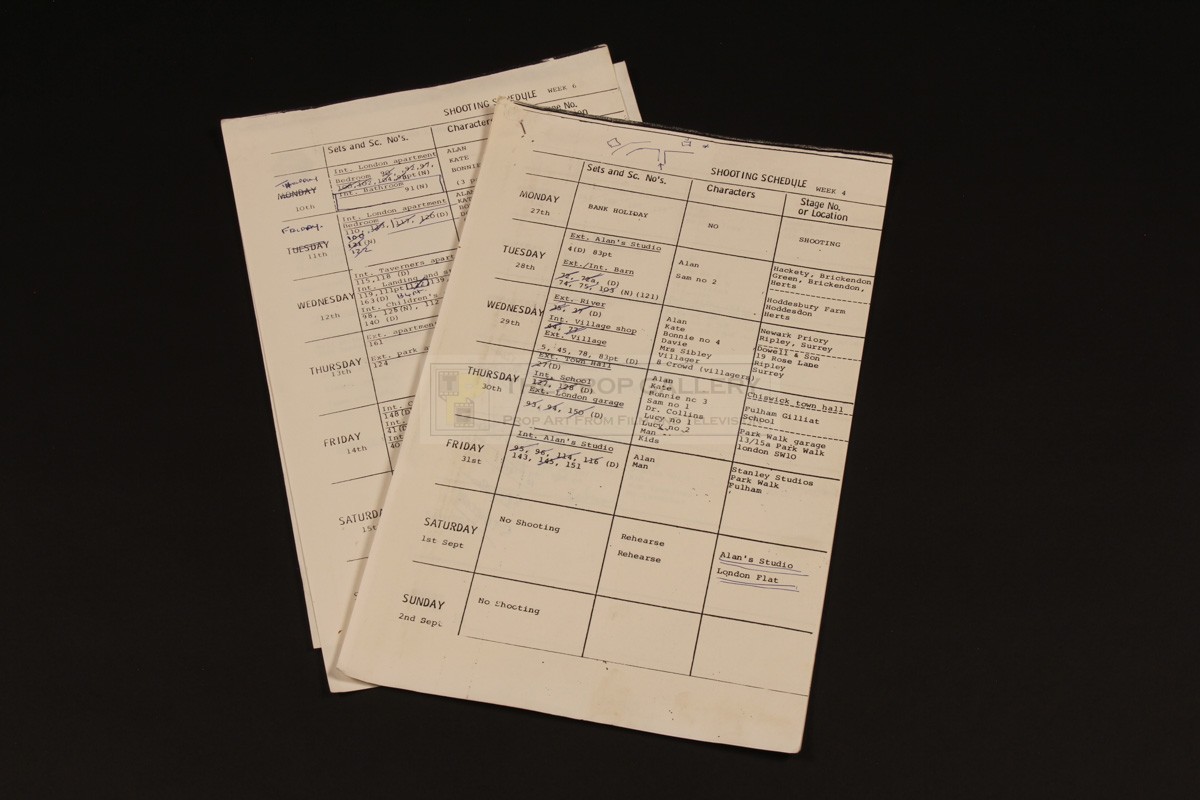 SHOOTING SCHEDULE WEEK 6
Sets and Sc. No's.
Characters
Int. London apartment
Bedroom
Int. Bathroom 91(N)
ALAN
KATE
BONNIE
MONDAY
10th
Friday
TUESDAY
11th
Int. London apartment
Bedroom
WEDNESDAY
12th
Int. Taverners apart
115,118 (D)
Int. Landing and st
163(D)
Int. Children's
98, 125(N), 112
140 (D)
THURSDAY
13th
Ext. apartment
161
Ext. park
124
FRIDAY
14th
SATURDAY
SHOOTING SCHEDULE WEEK 4
Sets and Sc. No's.
Characters
Stage No.
or Location
MONDAY
27th
BANK HOLIDAY
NO
SHOOTING
TUESDAY
28th
Ext. Alan's Studio
4(D) 83pt
Ext./Int. Barn
72, 76a, (D)
74, 75, 103 (N)(121)
Alan
Sam no 2
Hackety, Brickendon
Green, Brickendon,
Herts
Hoddesbury Farm
Hoddesdon
Herts
WEDNESDAY
29th
Ext. River
Int. Village shop
Ext. Village
5, 45, 78, 83pt (D)
Alan
Kate
Bonnie no 4
Davie
Mrs Sibley
Villager
8 Crowd (villagers)
Newark Priory
Ripley, Surrey
Dowell & Son
19 Rose Lane
Ripley
Surrey
THURSDAY
30th
Ext. Town Hall
27(D)
Int. School
127, 128 (D)
Ext. London garage
93, 94, 150 (D)
Alan
Kate
Bonnie no 3
Sam no 1
Dr. Collins
Lucy no 1
Lucy no 2
Man
Kids
Chiswick town hall
Fulham Gilliat
School
Park Walk garage
13/15a Park Walk
london SW10
FRIDAY
31st
Int. Alan's Studio
95, 96, 114, 116 (D)
143, 145, 151
Alan
Man
Stanley Studios
Park Walk
Fulham
SATURDAY
1st Sept
No Shooting
Rehearse
Rehearse
Alan's Studio
London Flat
SUNDAY
2nd Sept
No Shooting
THE PROP GALLERY
PROP ART FROM FILM & TELEVISION